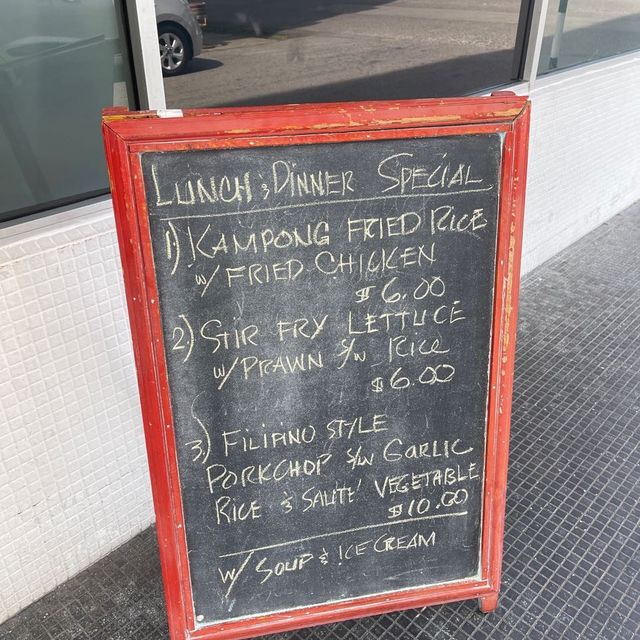 LUNCH & DINNER SPECIAL
1) KAMPONG FRIED RICE
w/ FRIED CHICKEN
$6.00
2) STIR FRY LETTUCE
w/ PRAWN S/W RICE
$6.00
3) FILIPINO STYLE
PORKCHOP S/W GARLIC
RICE & SAUTE' VEGETABLE
$10.00
w/ SOUP & ICE CREAM